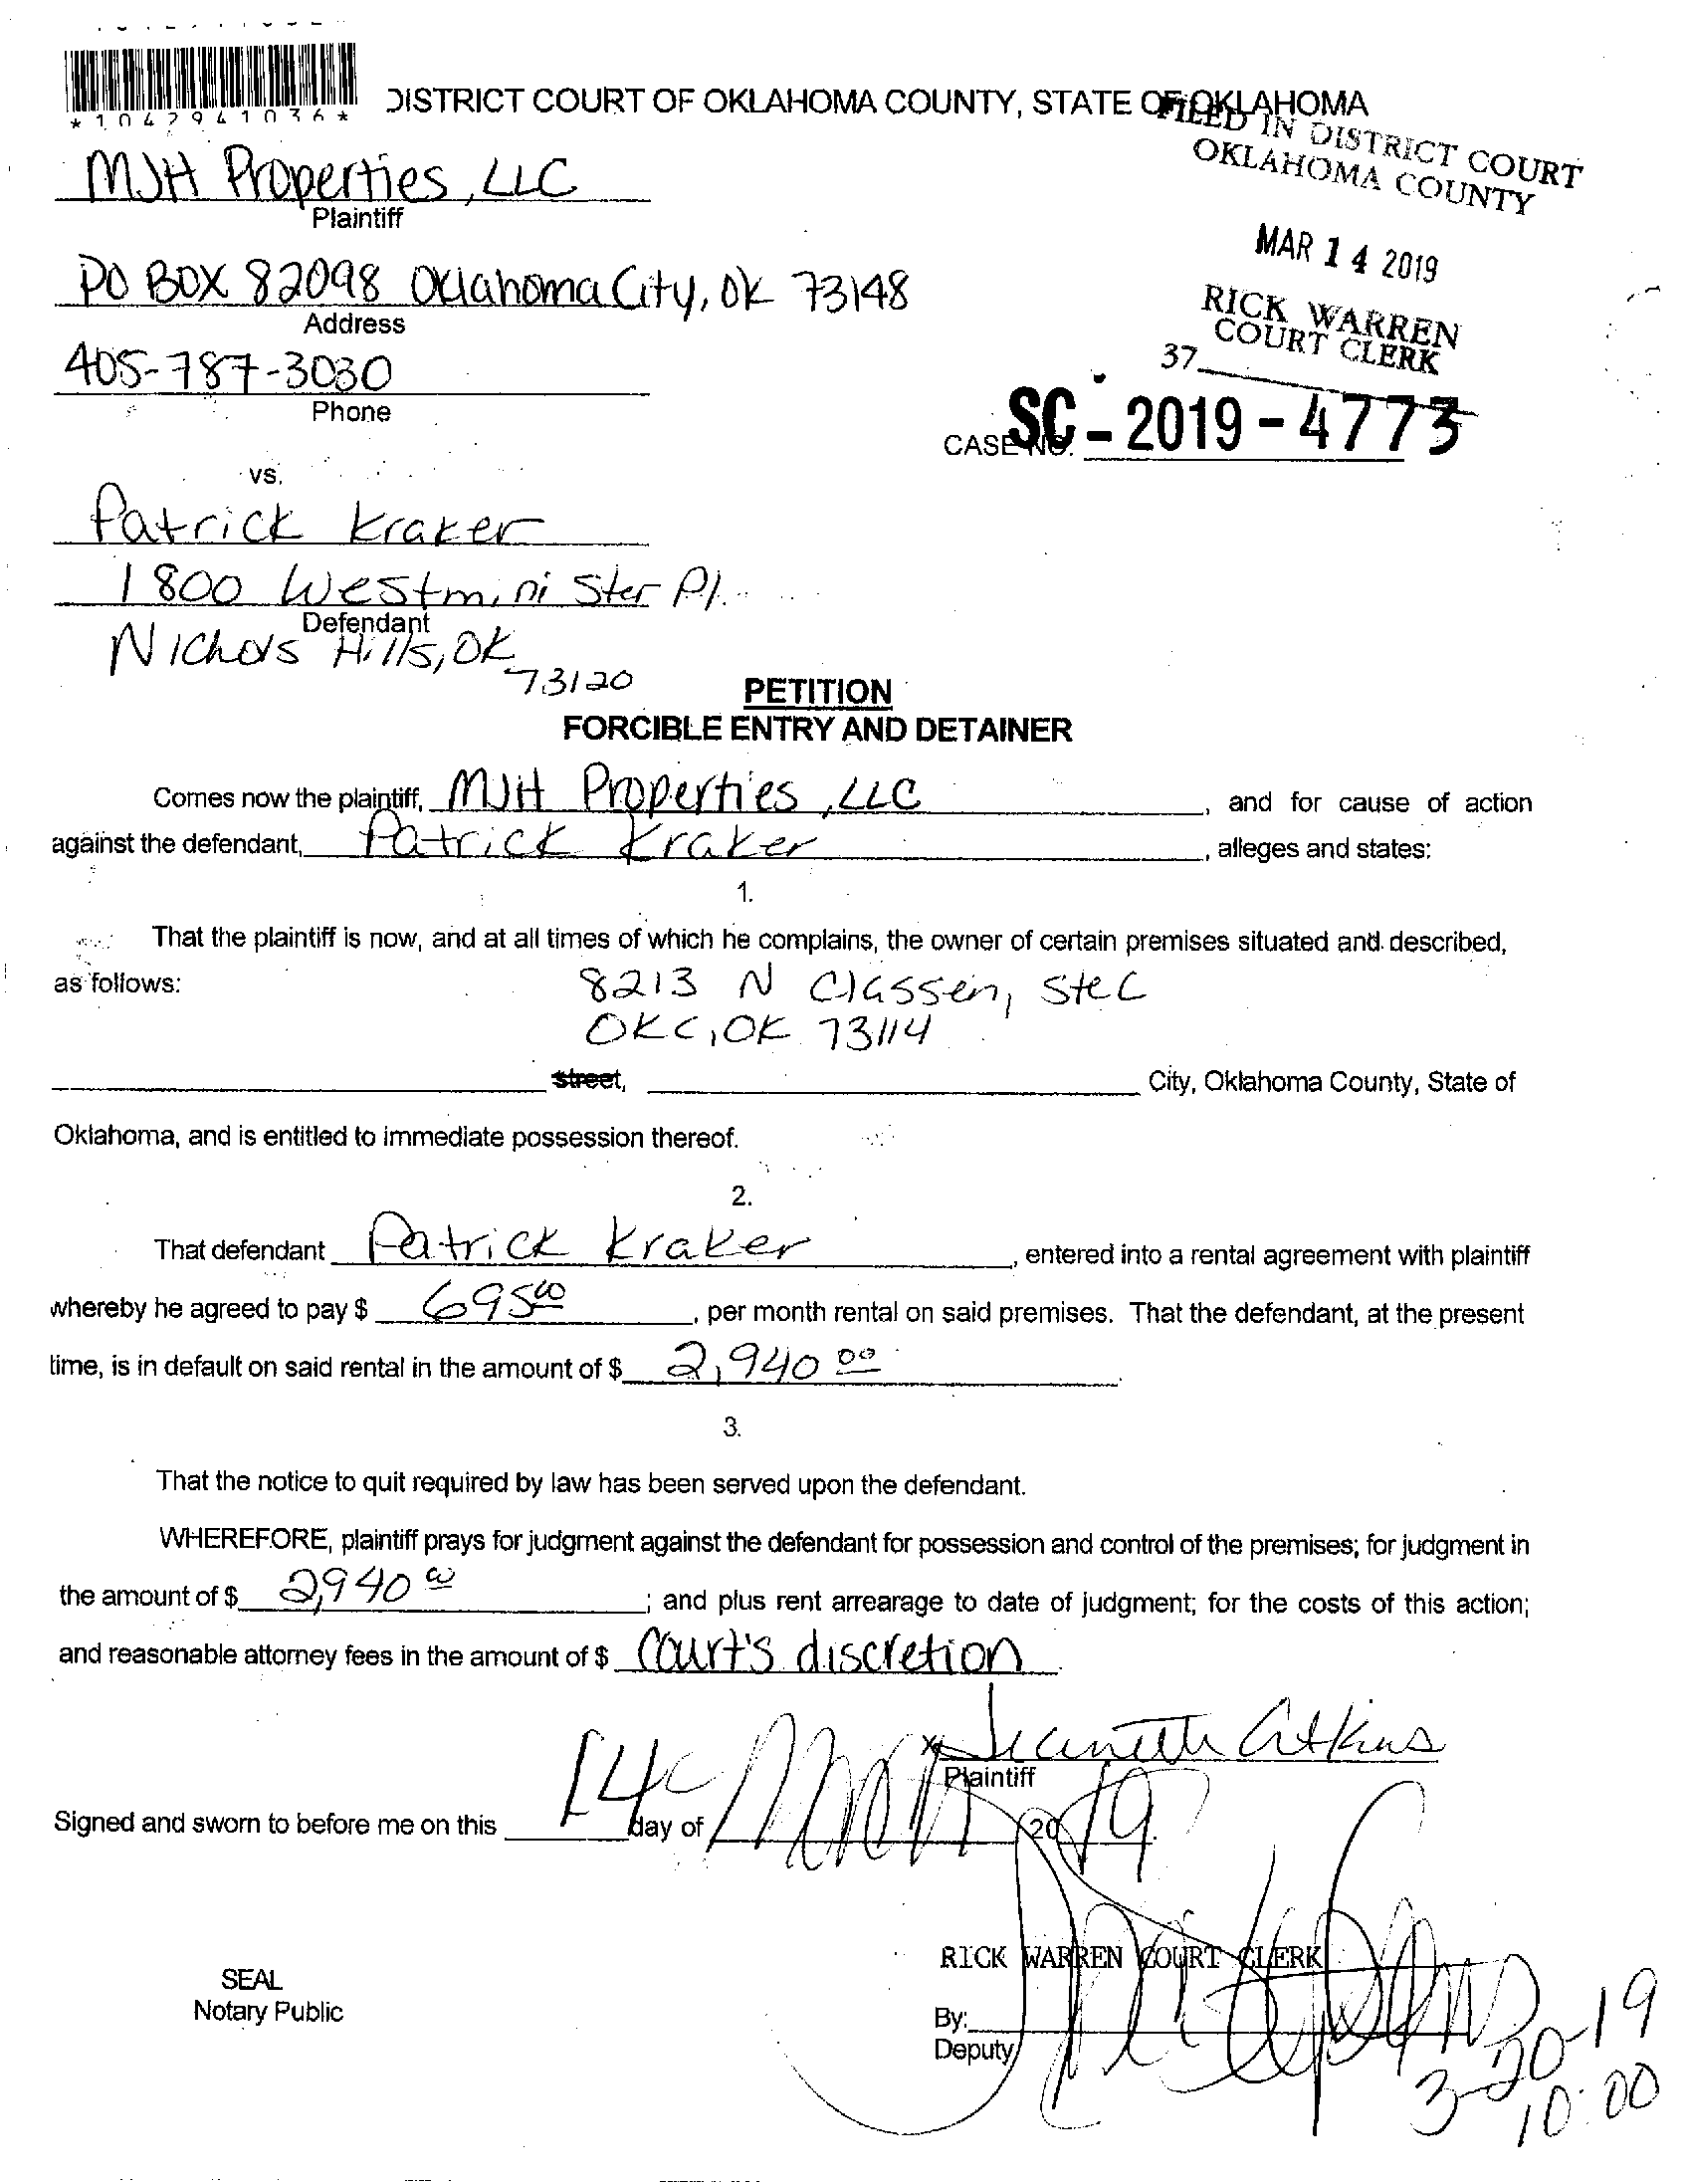 *1042941036*
DISTRICT COURT OF OKLAHOMA COUNTY, STATE OF OKLAHOMA
FILED IN DISTRICT COURT
OKLAHOMA COUNTY
MJH Properties, LLC
Plaintiff
MAR 14 2019
PO BOX 82098 Oklahoma City, OK 73148
Address
RICK WARREN
COURT CLERK
37
405-787-3030
Phone
CASE NO. SC-2019-4773
vs.
Patrick Kraker
1800 Westmini ster Pl.
Defendant
Nichols Hills, OK
73120
PETITION
FORCIBLE ENTRY AND DETAINER
Comes now the plaintiff, MJH Properties, LLC, and for cause of action
against the defendant, Patrick Kraker, alleges and states:
1.
That the plaintiff is now, and at all times of which he complains, the owner of certain premises situated and described,
as follows: 8213 N Classen, Ste C
OKC, OK 73114
street, City, Oklahoma County, State of
Oklahoma, and is entitled to immediate possession thereof.
2.
That defendant Patrick Kraker, entered into a rental agreement with plaintiff
whereby he agreed to pay $ 695.00, per month rental on said premises. That the defendant, at the present
time, is in default on said rental in the amount of $ 2,940 00.
3.
That the notice to quit required by law has been served upon the defendant.
WHEREFORE, plaintiff prays for judgment against the defendant for possession and control of the premises; for judgment in
the amount of $ 2,940 00; and plus rent arrearage to date of judgment; for the costs of this action;
and reasonable attorney fees in the amount of $ Court's discretion.
x Jeanette Atkins
Plaintiff
Signed and sworn to before me on this 14 day of Mar 2019.
RICK WARREN COURT CLERK
SEAL
Notary Public
By:
Deputy
3-20-19
10:00